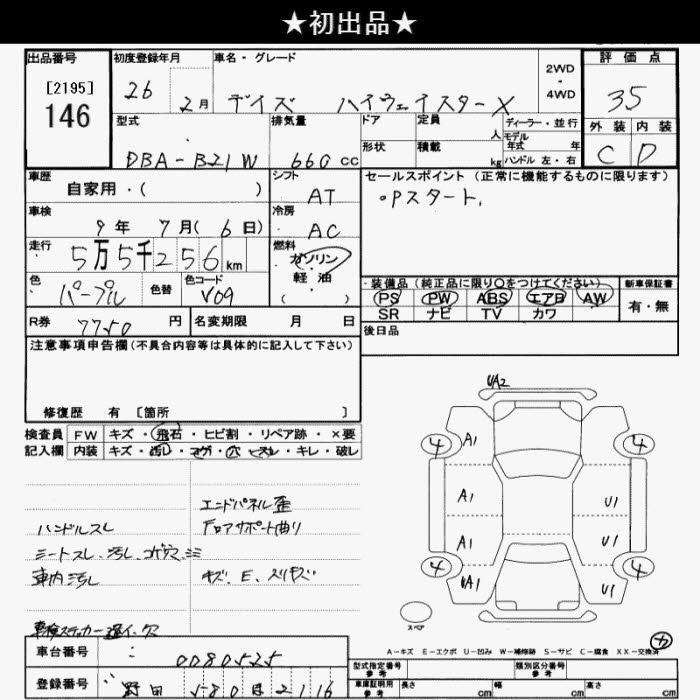 ★初出品★
出品番号
[2195]
146
初度登録年月
26 2月
車名・グレード
デイズ ハイウェイスターX
2WD・4WD
評価点
35
型式
DBA-B21W
排気量
660 cc
ドア
形状
定員 人
積載 kg
ディーラー・並行
モデル年式 年
ハンドル 左・右
外装 内装
C D
車歴
自家用・( )
シフト
AT
セールスポイント (正常に機能するものに限ります)
・Pスタート,
車検
9年 7月(6日)
冷房
AC
走行
5万5千256km
燃料
ガソリン
軽・油
( ・ )
色
パープル
色替
色コード
V09
・装備品(純正品に限り〇をつけてください)
PS PW ABS エアB AW
SR ナビ TV カワ
新車保証書
有・無
R券 7750 円
名変期限 月 日
後日品
注意事項申告欄(不具合内容等は具体的に記入して下さい)
修復歴 有 〔箇所 〕
検査員
記入欄
FW キズ・飛石・ヒビ割・リペア跡・×要
内装 キズ・汚レ・コゲ・穴・スレ・キレ・破レ
エンドパネル歪
ハンドルスレ
フロアサポート曲り
シートスレ、汚レ、コゲ穴
車内汚レ
キズ、E、スリキズ
車検ステッカー
UA2
4 A1 4
A1 U1
A1 U1
4 UA1 U1 4
スペア
カ
A-キズ E-エクボ U-凹み W-補修跡 S-サビ C-腐食 XX-交換済
車台番号
0080525
登録番号
野田 580 2116
型式指定番号
参考
類別区分番号
参考
車庫証明用
参考
長さ cm 幅 cm 高さ cm